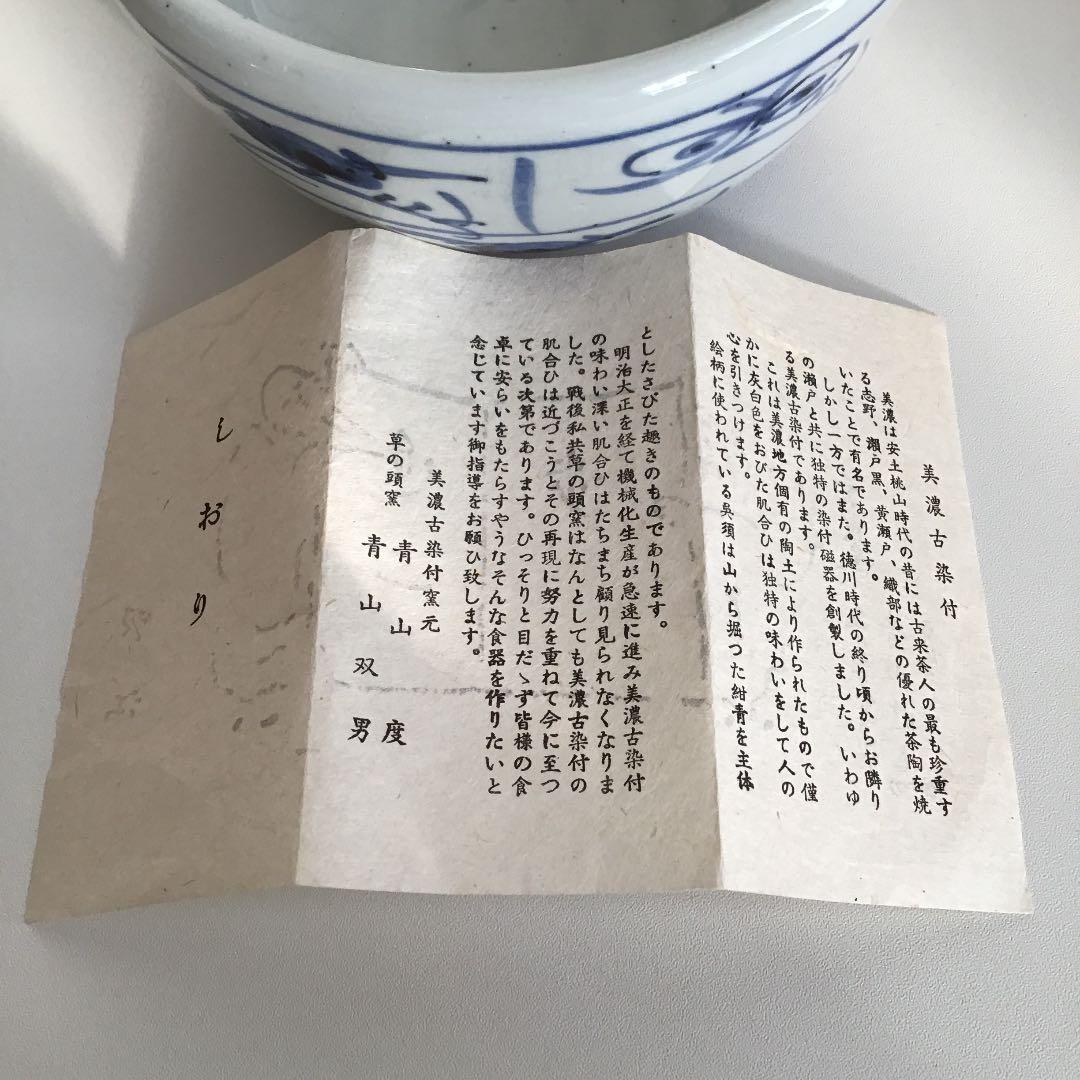 美濃古染付
美濃は安土桃山時代の昔には古来茶人の最も珍重す
る志野、瀬戸黒、黄瀬戸、織部などの優れた茶陶を焼
いたことで有名であります。
しかし一方ではまた。徳川時代の終り頃からお隣り
の瀬戸と共に独特の染付磁器を創製しました。いわゆ
る美濃古染付であります。
これは美濃地方個有の陶土により作られたもので僅
かに灰白色をおびた肌合ひは独特の味わいをして人の
心を引きつけます。
絵柄に使われている呉須は山から掘つた紺青を主体
としたさびた趣きのものであります。
明治大正を経て機械化生産が急速に進み美濃古染付
の味わい深い肌合ひはたちまち顧り見られなくなりま
した。戦後私共草の頭窯はなんとしても美濃古染付の
肌合ひは近づこうとその再現に努力を重ねて今に至つ
ている次第であります。ひっそりと目だゝず皆様の食
卓に安らいをもたらすやうなそんな食器を作りたいと
念じています御指導をお願ひ致します。
美濃古染付窯元
草の頭窯
青山度
青山双男
しおり